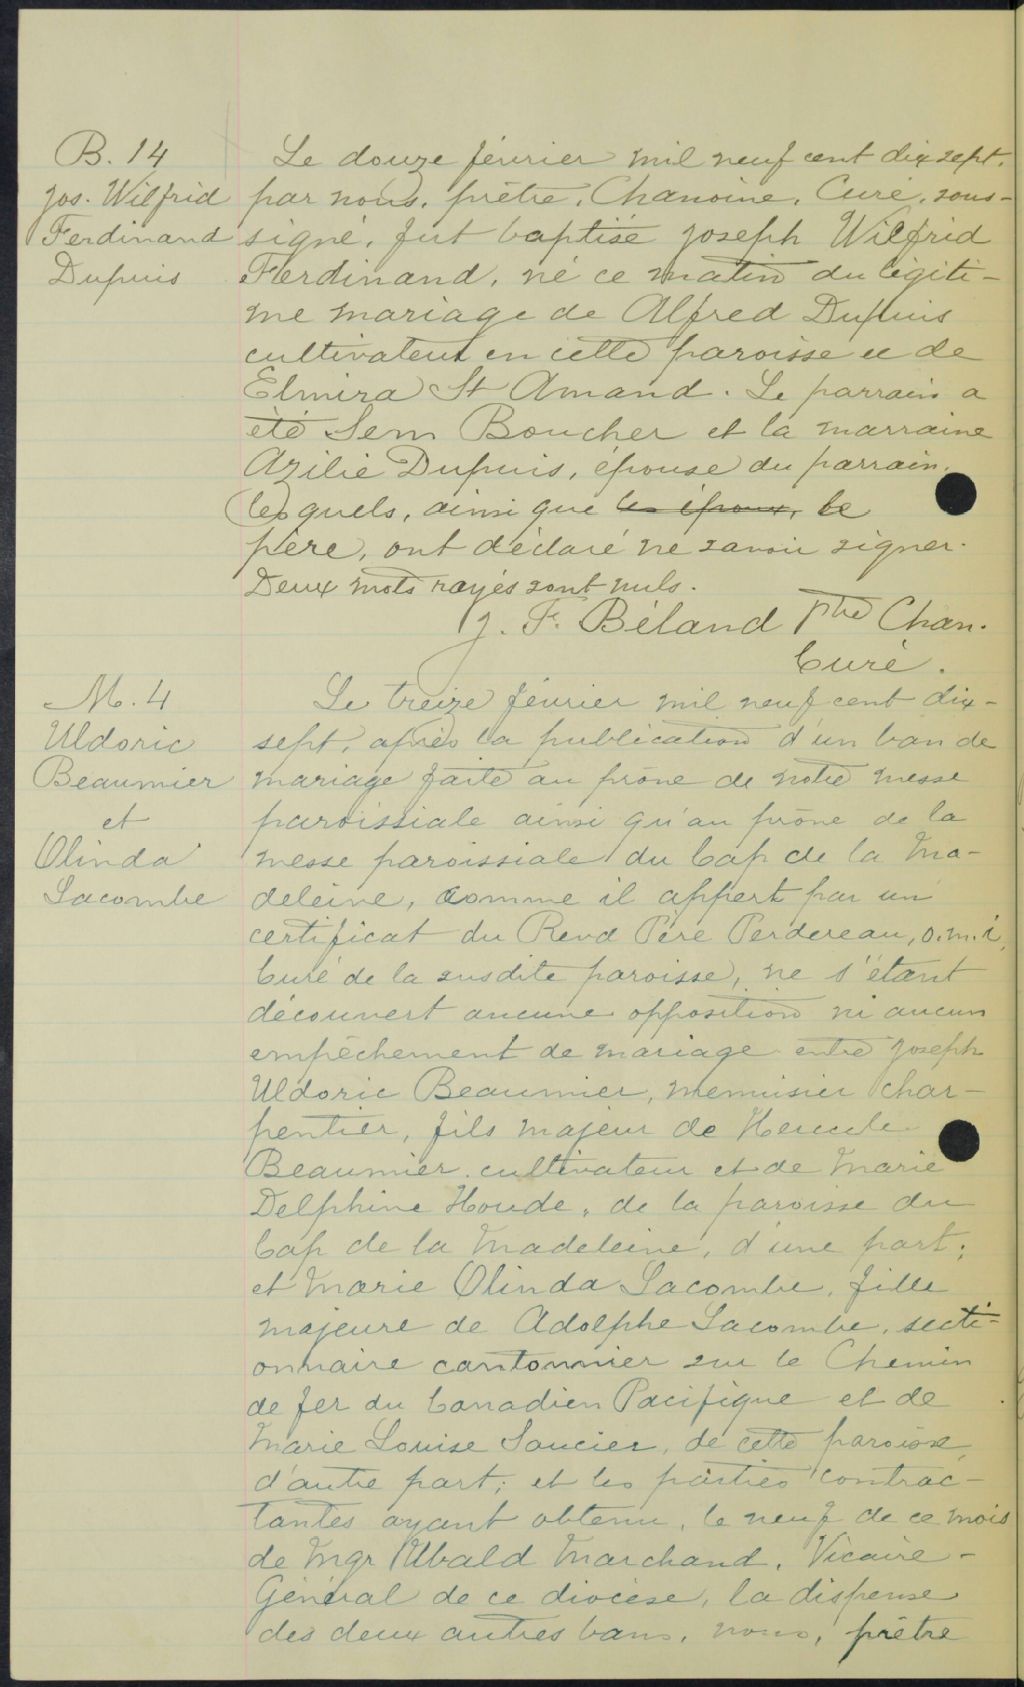 B. 14
Jos. Wilfrid
Ferdinand
Dupuis
Le douze février mil neuf cent dix sept,
par nous, prêtre, Chanoine, Curé, sous-
signé, fut baptisé Joseph Wilfrid
Ferdinand, né ce matin du légiti-
me mariage de Alfred Dupuis
cultivateur en cette paroisse et de
Elmira St Amand. Le parrain a
été Sem Boucher et la marraine
Azilie Dupuis, épouse du parrain,
lesquels, ainsi que les époux, le
père, ont déclaré ne savoir signer.
Deux mots rayés sont nuls.
J. F. Béland Ptre Chan.
Curé.
M. 4
Uldoric
Beaumier
et
Olinda
Lacombe
Le treize février mil neuf cent dix-
sept, après la publication d'un ban de
mariage faite au prône de notre messe
paroissiale ainsi qu'au prône de la
messe paroissiale du Cap de la Ma-
deleine, comme il appert par un
certificat du Revd Père Perdereau, o.m.i,
Curé de la susdite paroisse, ne s'étant
découvert aucune opposition ni aucun
empêchement de mariage entre Joseph
Uldoric Beaumier, menuisier char-
pentier, fils majeur de Hercule
Beaumier cultivateur et de Marie
Delphine Houde, de la paroisse du
Cap de la Madeleine, d'une part;
et Marie Olinda Lacombe, fille
majeure de Adolphe Lacombe, secti-
onnaire cantonnier sur le Chemin
de fer du Canadien Pacifique et de
Marie Louise Saucier, de cette paroisse
d'autre part; et les parties contrac-
tantes ayant obtenu, le neuf de ce mois
de Mgr Ubald Marchand, Vicaire-
Général de ce diocèse, la dispense
des deux autres bans, nous, prêtre